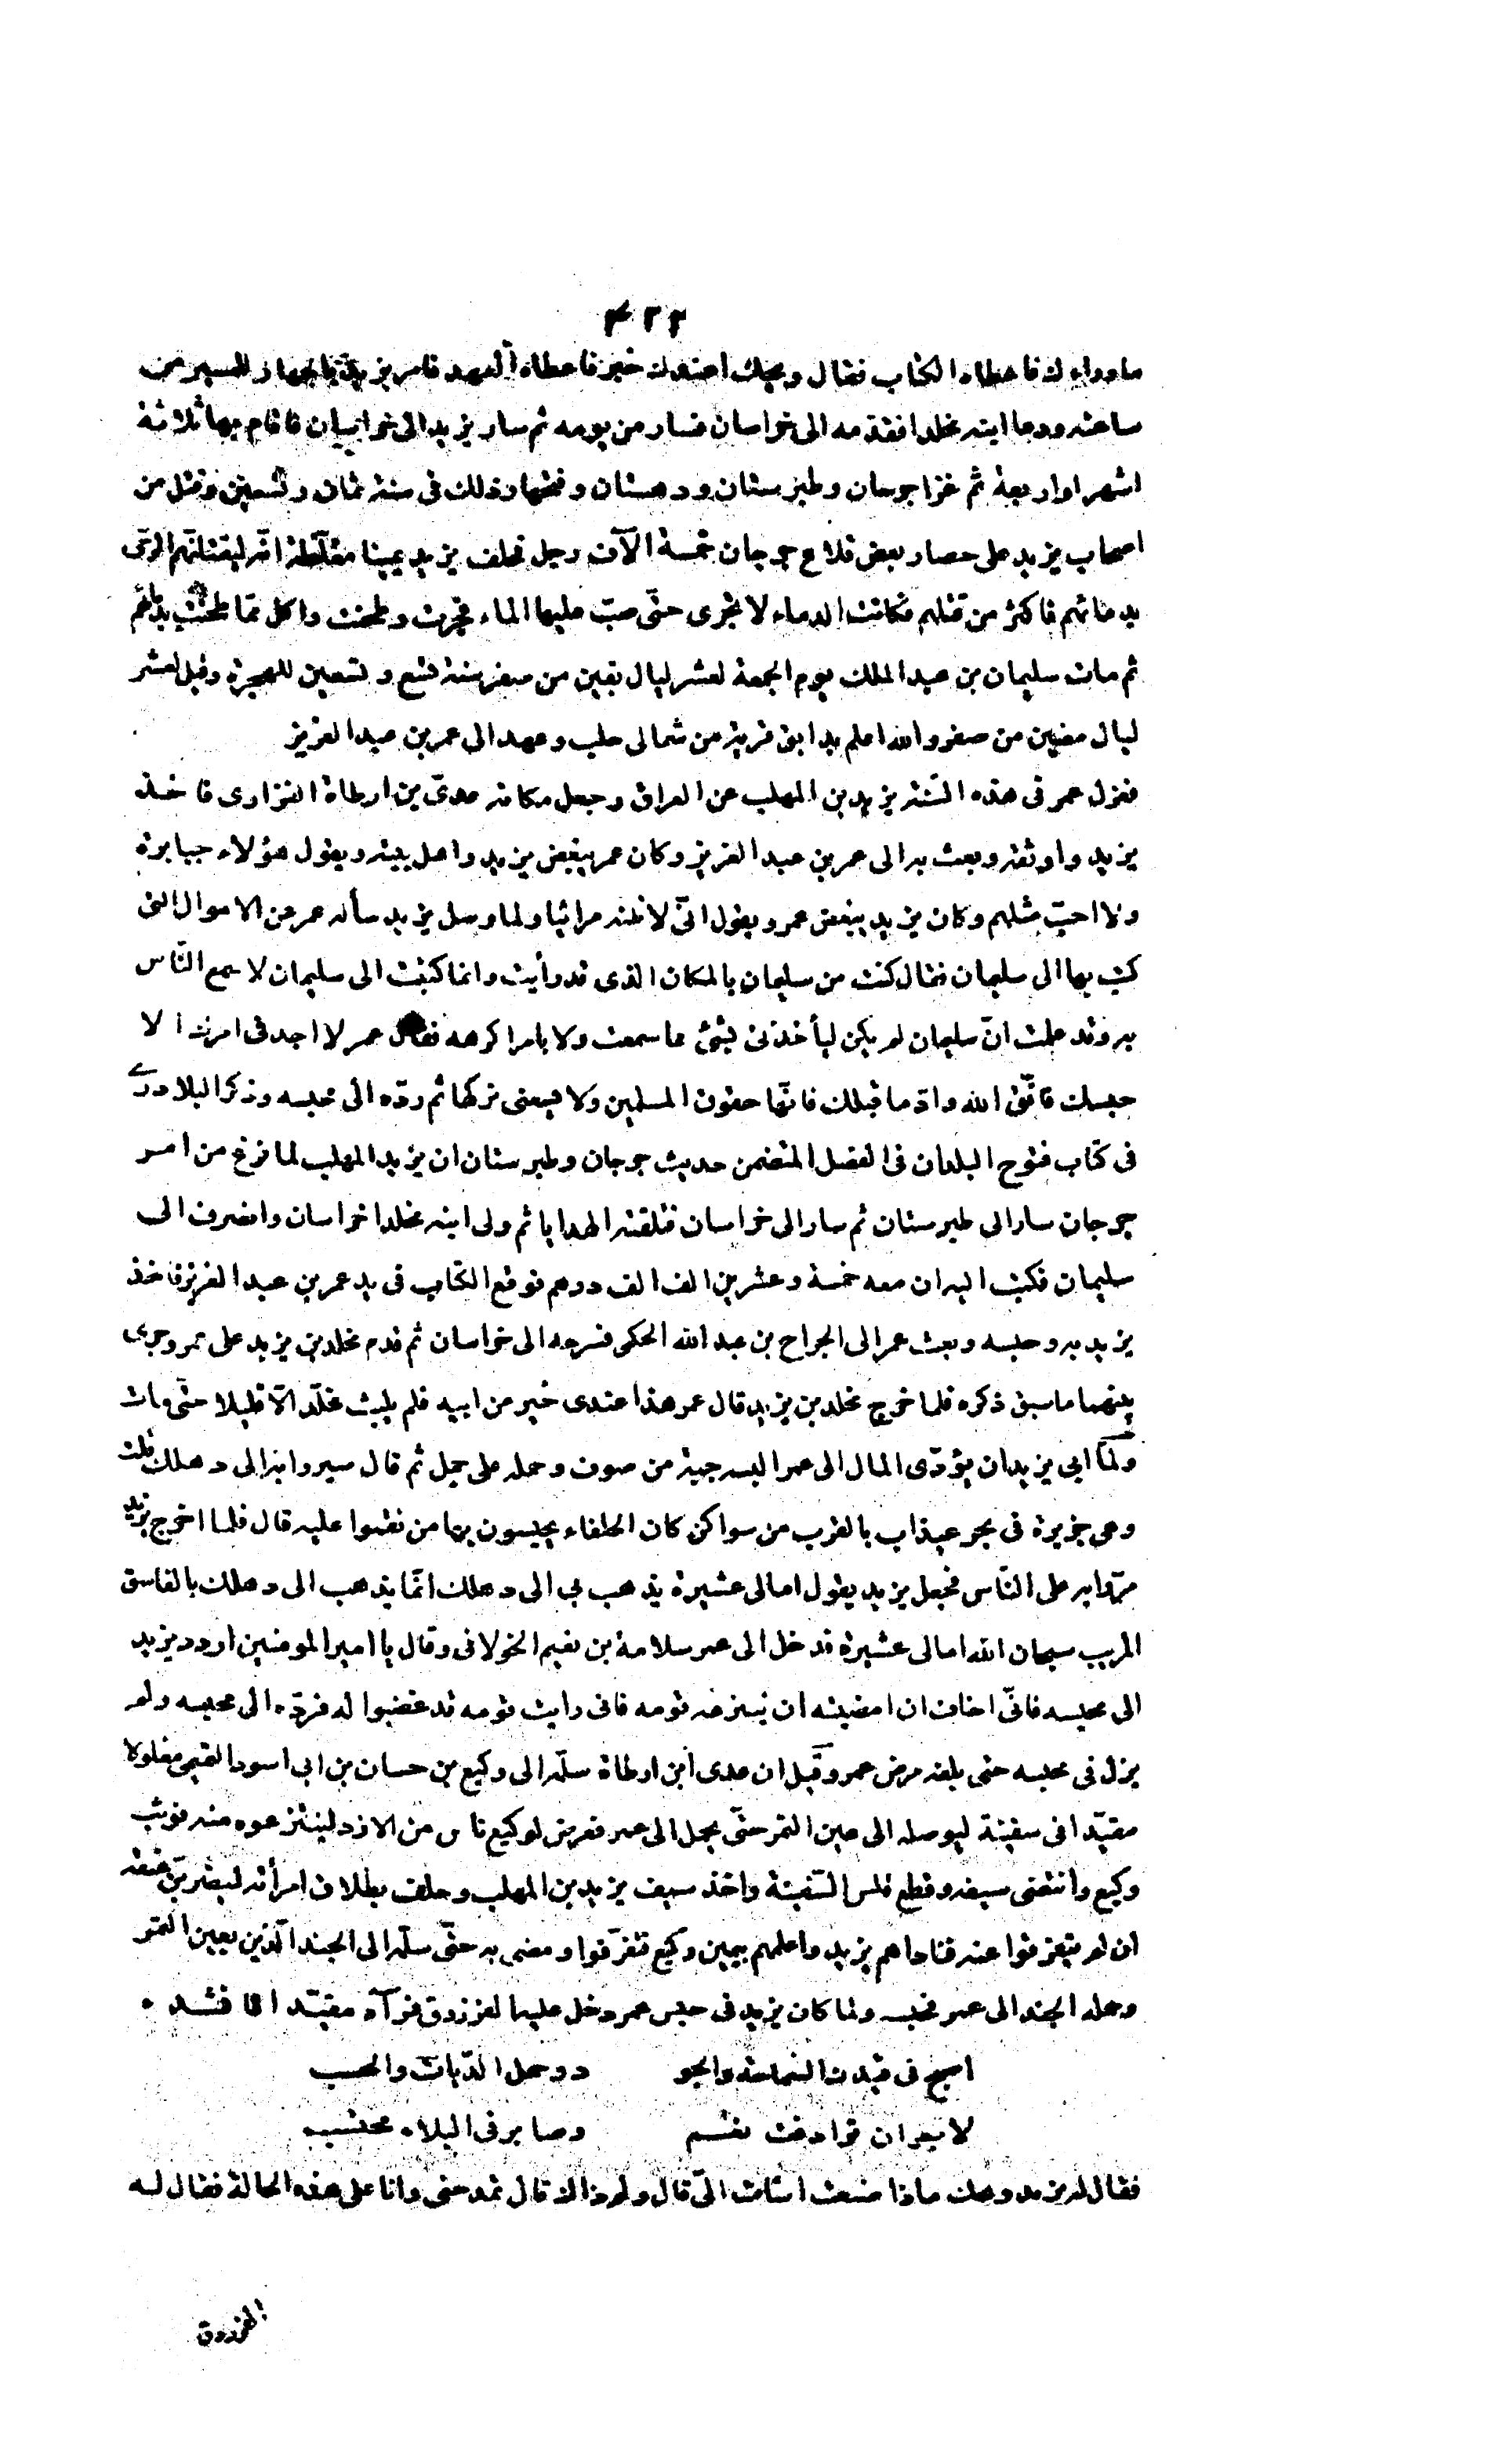 ۴۲۲
ماوراءك فاعطاه الكتاب فقال ويحك اعندك خير فاعطاه العهد فامر يزيد بالجهاز للمسير من
ساعته ودعا ابنه مخلدا فقدمه الى خراسان فسار من يومه ثم سار يزيد الى خراسان فاقام بها ثلاثة
اشهر او اربعة ثم غزا جرجان وطبرستان ودهستان وفتحها وذلك فى سنة ثمان وتسعين وقتل من
اصحاب يزيد على حصار بعض قلاع جرجان خمسة الآف رجل فحلف يزيد يمينا مغلّظة انّه ليقتلنّهم الرحى
بدمائهم فاكثر من قتلهم فكانت الدماء لا تجرى حتّى صبّ عليها الماء فجرت وطحنت واكل ممّا طحنت بدمائهم
ثم مات سليمان بن عبد الملك يوم الجمعة لعشر ليال بقين من صفر سنة تسع وتسعين للهجرة وقيل لعشر
ليال مضين من صفر والله اعلم بدابق قرية من شمالى حلب وعهد الى عمر بن عبد العزيز
فعزل عمر فى هذه السّنة يزيد بن المهلب عن العراق وجعل مكانه عدىّ بن ارطاة الفزارى فاخذ
يزيد واوثقه وبعث به الى عمر بن عبد العزيز وكان عمر يبغض يزيد واهل بيته ويقول هؤلاء جبابرة
ولا احبّ مثلهم وكان يزيد يبغض عمر ويقول انّى لاظنه مرائيا ولما وصل يزيد سأله عمر عن الاموال التى
كتب بها الى سليمان فقال كنت من سليمان بالمكان الذى قد رأيت وانما كتبت الى سليمان لاسمع النّاس
به وقد علمت انّ سليمان لم يكن ليأخذنى بشئ مما سمعت ولا بامر اكرهه فقال عمر لا اجد فى امرك الا
حبسك فاتّق الله وادّ ما قبلك فانّها حقوق المسلمين ولا يسعنى تركها ثم ردّه الى محبسه وذكر البلادرى
فى كتاب فتوح البلدان فى الفصل المتضمن حديث جرجان وطبرستان ان يزيد المهلب لما فرغ من امر
جرجان سار الى طبرستان ثم سار الى خراسان فتلقته الهدايا ثم ولى ابنه مخلدا خراسان وانصرف الى
سليمان فكتب اليه ان معه خمسة وعشرين الف الف درهم فوقع الكتاب فى يد عمر بن عبد العزيز فاخذ
يزيد به وحبسه وبعث عمر الى الجراح بن عبد الله الحكمى فسرحه الى خراسان ثم قدم مخلد بن يزيد على عمر وجرى
بينهما ما سبق ذكره فلما خرج مخلد بن يزيد قال عمر هذا عندى خير من ابيه فلم يلبث مخلّد الّا قليلا حتّى مات
ولمّا ابى يزيد ان يؤدّى المال الى عمر البسه جبة من صوف وحمله على جمل ثم قال سيروا به الى دهلك قلت
وهى جزيرة فى بحر عيذاب بالقرب من سواكن كان الخلفاء يحبسون بها من نقموا عليه قال فلما اخرج يزيد
مرّوا به على النّاس فجعل يزيد يقول امالى عشيرة يذهب بى الى دهلك انّما يذهب الى دهلك بالفاسق
المريب سبحان الله امالى عشيرة فدخل الى عمر سلامة بن نعيم الخولانى وقال يا امير المومنين اردد يزيد
الى محبسه فانّى اخاف ان امضيته ان ينزعه قومه فانى رايت قومه قد غضبوا له فردّه الى محبسه ولم
يزل فى محبسه حتى بلغه مرض عمر وقيل ان عدى ابن ارطاة سلّمه الى وكيع بن حسان بن ابى اسود التميمى مغلولا
مقيّدا فى سفينة ليوصله الى عين التمر حتّى يحمل الى عمر فعرض لوكيع ناس من الازد لينتزعوه منه فوثب
وكيع وانتضى سيفه وقطع قلس السّفينة واخذ سيف يزيد بن المهلب وحلف بطلاق امرأته ليضربنّ عنقه
ان لم يتفرقوا عنه فناداهم يزيد واعلمهم بيمين وكيع فتفرّقوا ومضى به حتّى سلّمه الى الجند الّذين بعين التمر
وحمله الجند الى عمر فحبسه ولما كان يزيد فى حبس عمر دخل عليه الفرزدق فرآه مقيّدا فانشده
اصبح فى قيدك السماحة والجو دو حمل الدّيات والحسب
لا بطر ان ترادفت نعم وصابر فى البلاء محتسب
فقال له يزيد ويحك ماذا صنعت اسأت الىّ قال ولم ذاك قال تمدحنى وانا على هذه الحالة فقال له
الفرزدق